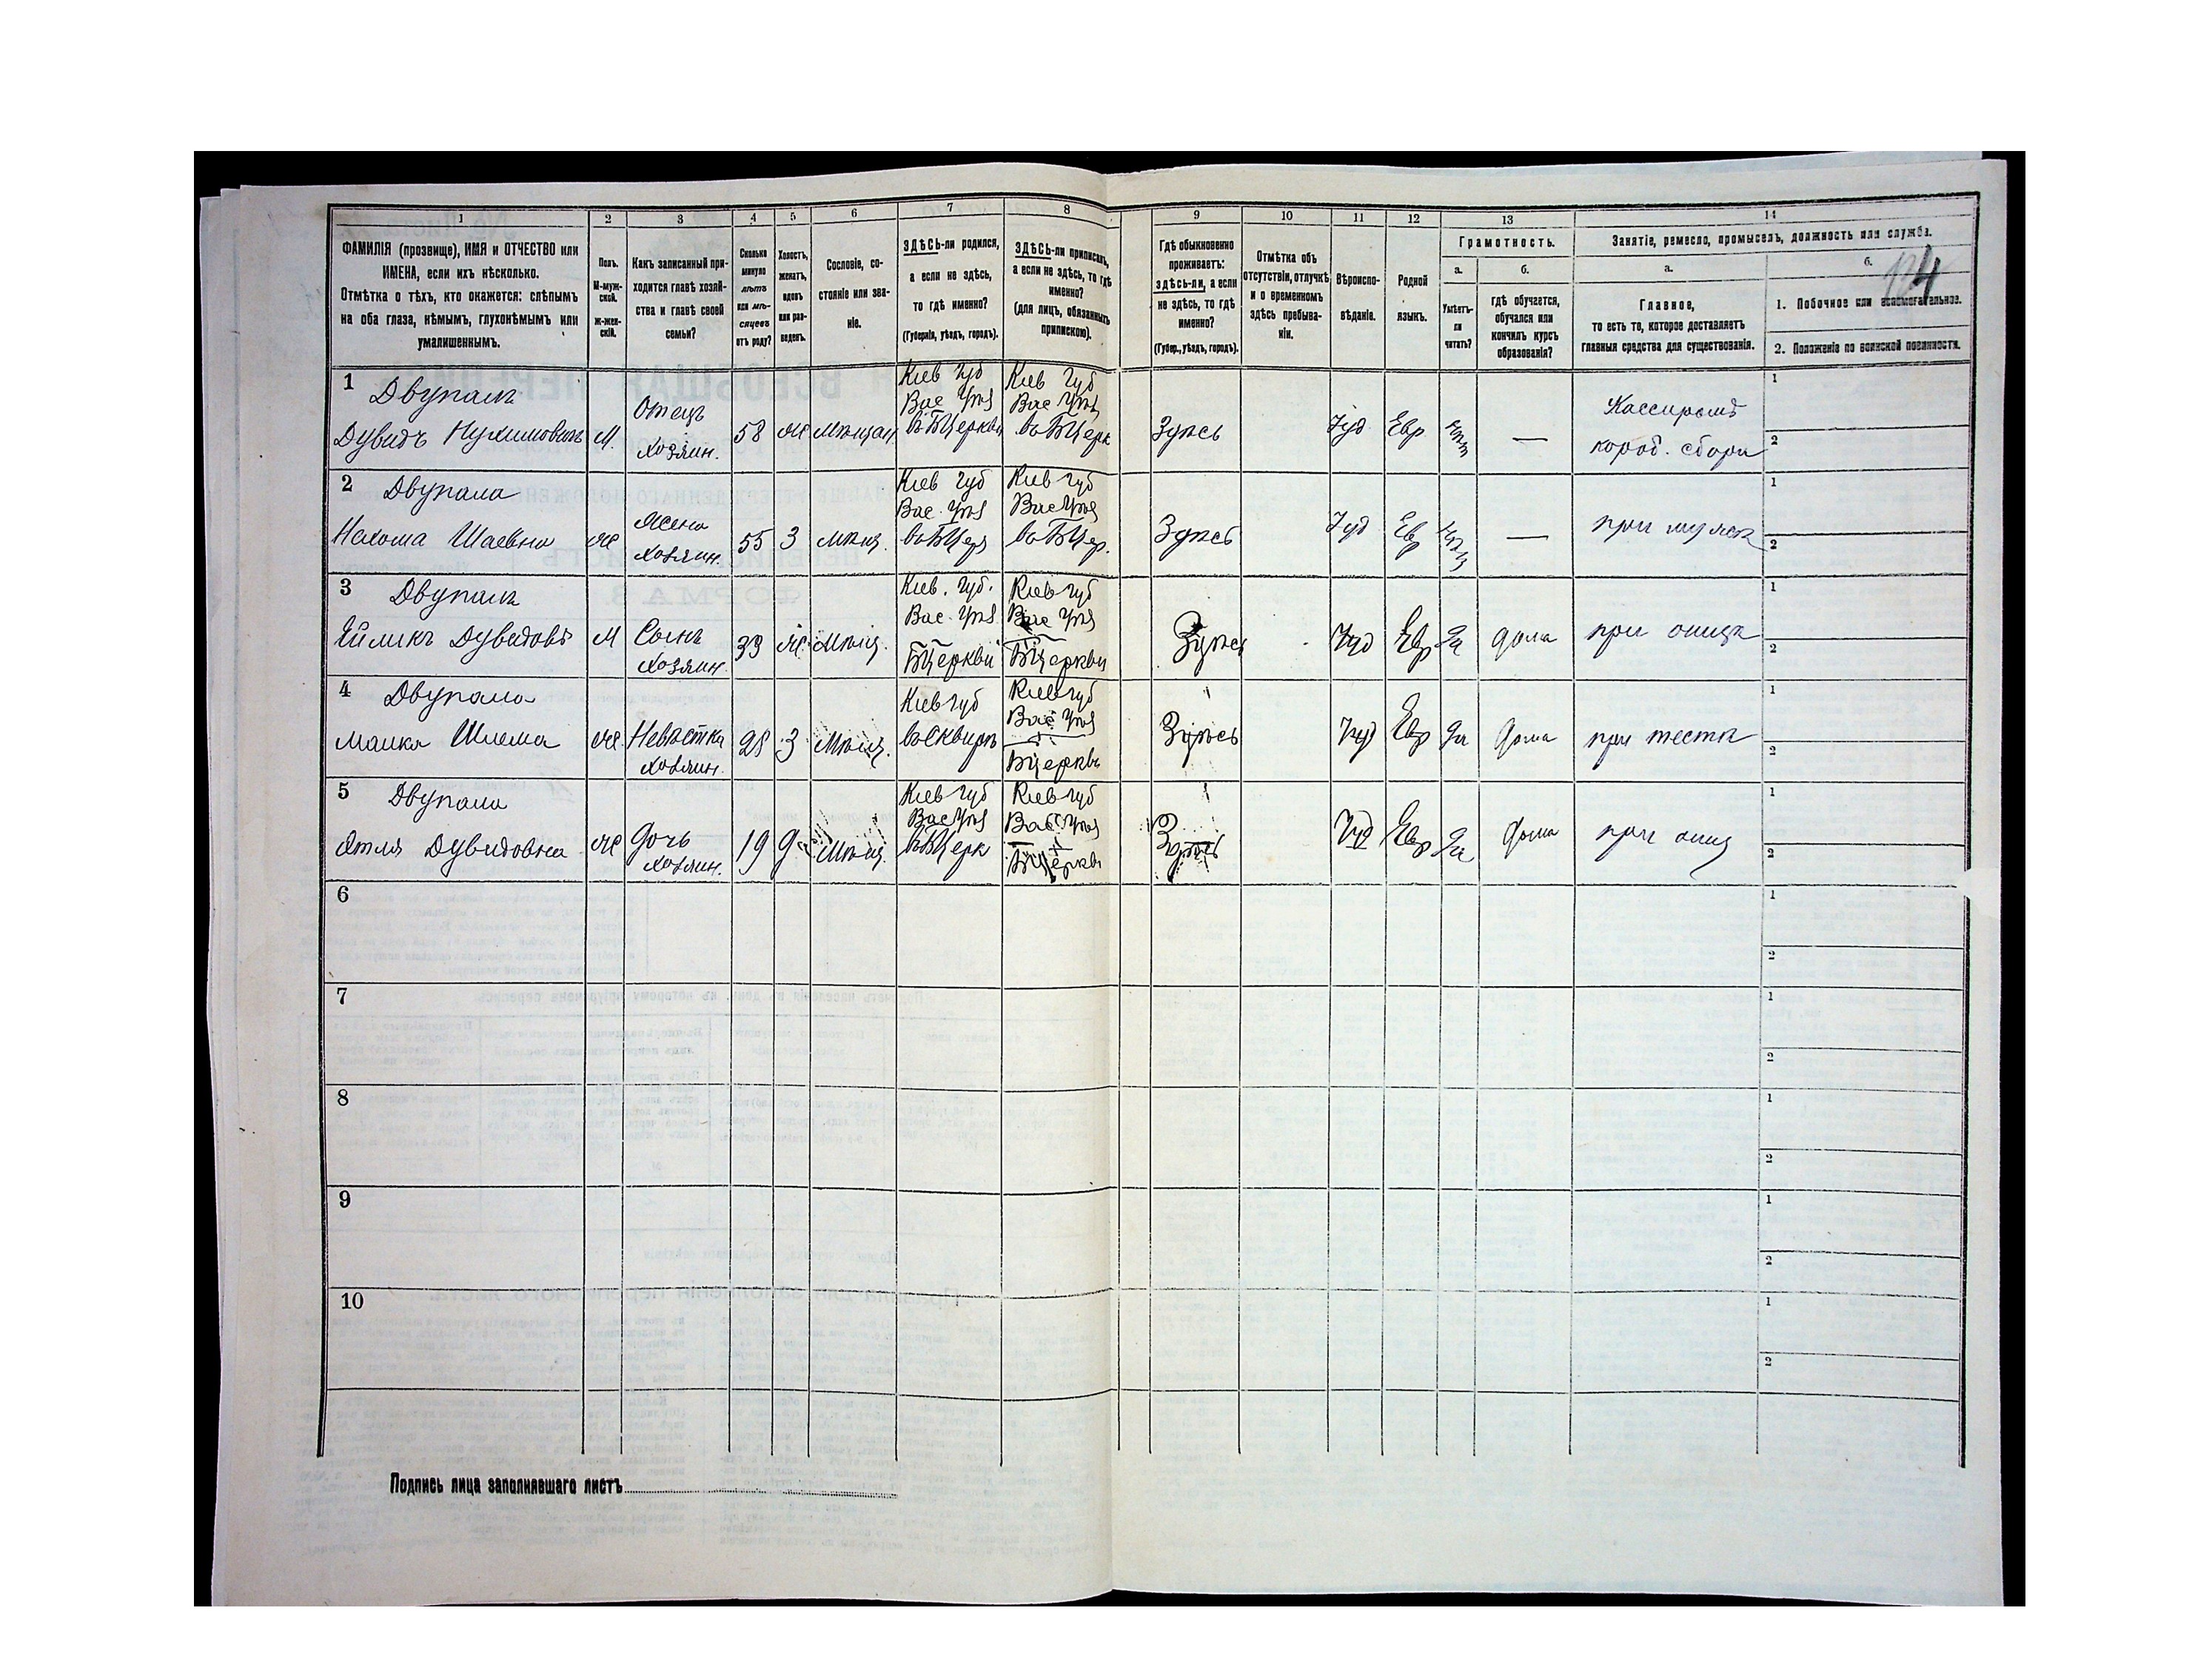 1 2 3 4 5 6 7 8 9 10 11 12 13 14
ФАМИЛІЯ (прозвище), ИМЯ и ОТЧЕСТВО или
ИМЕНА, если ихъ нѣсколько.
Отмѣтка о тѣхъ, кто окажется: слѣпымъ
на оба глаза, нѣмымъ, глухонѣмымъ или
умалишеннымъ.
Полъ.
М-муж-
ской.
ж-жен-
скій.
Какъ записанный при-
ходится главѣ хозяй-
ства и главѣ своей
семьи?
Сколько
минуло
лѣтъ
или мѣ-
сяцевъ
отъ роду?
Холостъ,
женатъ,
вдовъ
или раз-
веденъ.
Сословіе, со-
стояніе или зва-
ніе.
ЗДѢСЬ-ли родился,
а если не здѣсь,
то гдѣ именно?
(Губернія, уѣздъ, городъ).
ЗДѢСЬ-ли приписанъ,
а если не здѣсь, то гдѣ
именно?
(для лицъ, обязанныхъ
припискою).
Гдѣ обыкновенно
проживаетъ:
здѣсь-ли, а если
не здѣсь, то гдѣ
именно?
(Губер., уѣздъ, городъ).
Отмѣтка объ
отсутствіи, отлучкѣ
и о временномъ
здѣсь пребыва-
ніи.
Вѣроиспо-
вѣданіе.
Родной
языкъ.
Грамотность.
а.
Умѣетъ-
ли
читать?
б.
гдѣ обучается,
обучался или
кончилъ курсъ
образованія?
Занятіе, ремесло, промыселъ, должность или служба.
а.
Главное,
то есть то, которое доставляетъ
главныя средства для существованія.
б.
1. Побочное или вспомогательное.
2. Положеніе по воинской повинности.
1
Двупалъ
Дувидъ Нухимовичъ
М.
Отецъ
хозяин.
58
Же
Мѣщан
Кіев Губ
Вас Уѣз
въ БЦеркви
Кіев Губ
Вас Уѣз
въ БЦерк
Здѣсь
Іуд
Евр
нѣт
—
Кассиромъ
короб. сбора
1
2
2
Двупала
Нехома Шаевна
Же
Жена
хозяин.
55
З
мѣщ.
Кіев губ
Вас. Уѣз
въ БЦер
Кіев губ
Вас Уѣз
въ БЦер.
Здѣсь
Іуд
Евр
—
при мужѣ
1
2
3
Двупалъ
Дувидовъ
М
Сынъ
хозяин.
33
Же
Мѣщ.
Кіев. губ.
Вас. Уѣз
БЦеркви
Кіев губ
Вас Уѣз
БЦеркви
Здѣсь
Іуд
Евр
Да
дома
при отцѣ
1
2
4
Двупала
Малка Шлема
Же
Невѣстка
хозяин.
28
З
Мѣщ.
Кіев губ
въ Сквирѣ
Кіев губ
Вас Уѣз
БЦеркви
Здѣсь
Іуд
Евр
Да
Дома
при тестѣ
1
2
5
Двупала
Этля Дувидовна
Же
Дочь
хозяин.
19
Д
Мѣщ.
Кіев губ
Вас Уѣз
въ БЦерк
Кіев губ
Вас Уѣз
БЦеркви
Здѣсь
Іуд
Евр
Да
Дома
при отц
1
2
6
1
2
7
1
2
8
1
2
9
1
2
10
1
2
Подпись лица заполнявшаго листъ